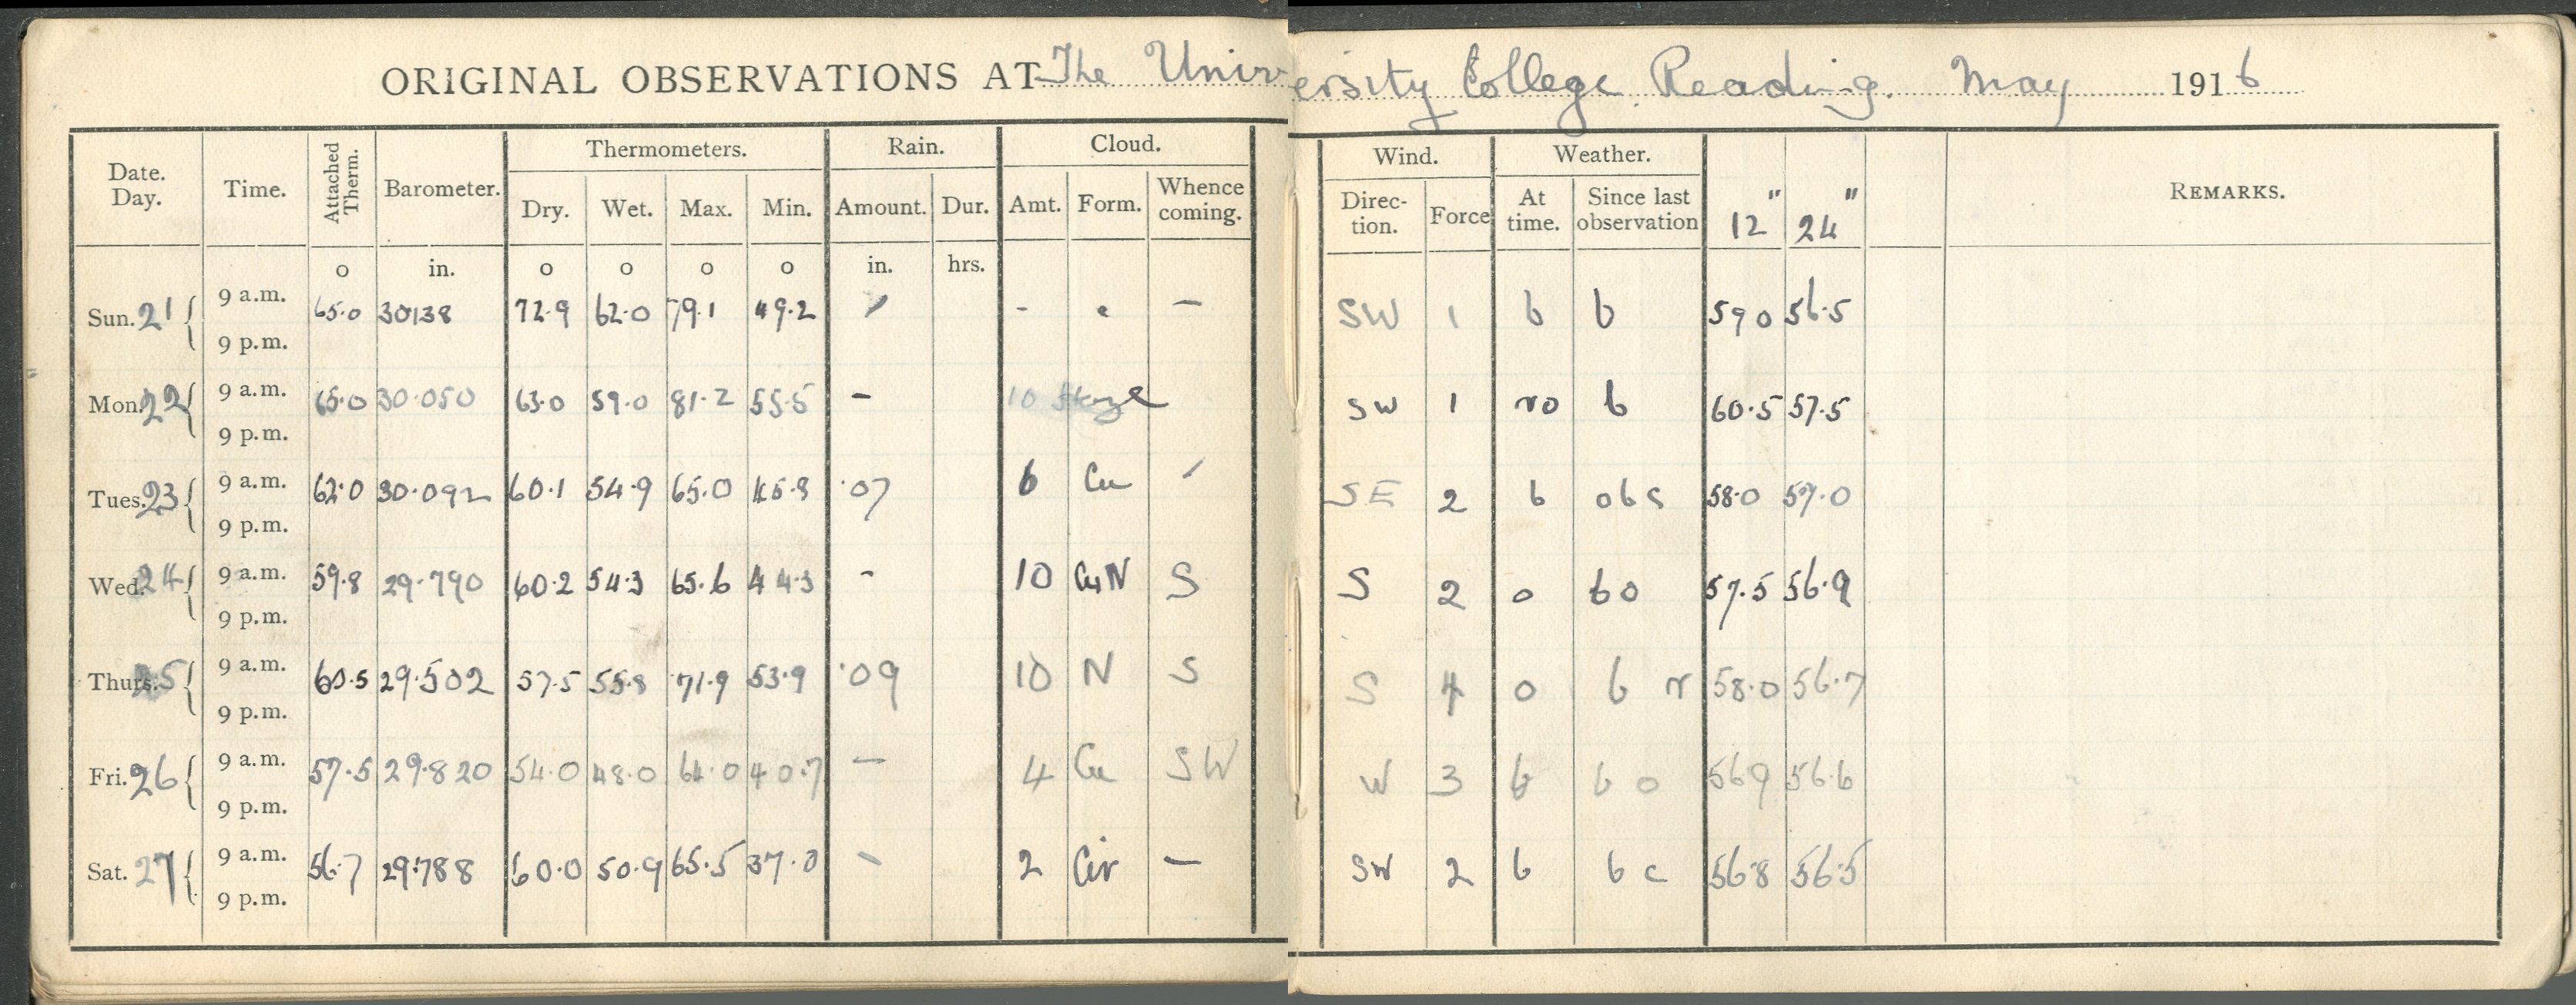 ORIGINAL OBSERVATIONS AT The University College Reading. May 1916
Date. Day. Time. Attached Therm. Barometer. Thermometers. Rain. Cloud. Wind. Weather. 12" 24" REMARKS.
Dry. Wet. Max. Min. Amount. Dur. Amt. Form. Whence coming. Direc- tion. Force At time. Since last observation
o in. o o o o in. hrs.
Sun. 21 9 a.m. 65.0 30138 72.9 62.0 79.1 49.2 - - - - SW 1 b b 59 0 56.5
9 p.m.
Mon. 22 9 a.m. 65.0 30.050 63.0 59.0 81.2 55.5 - 10 Haze SW 1 ro b 60.5 57.5
9 p.m.
Tues. 23 9 a.m. 62.0 30.092 60.1 54.9 65.0 .07 6 Cu - SE 2 b obs 58.0 57.0
9 p.m.
Wed. 24 9 a.m. 59.8 29.790 60.2 54.3 65.6 44.3 - 10 CuN S S 2 o bo 57.5 56.9
9 p.m.
Thurs. 25 9 a.m. 60.5 29.502 57.5 55.8 71.9 53.9 .09 10 N S S 4 o b r 58.0 56.7
9 p.m.
Fri. 26 9 a.m. 57.5 29.820 54.0 48.0 64.0 40.7 - 4 Cu SW W 3 b b o 569 56.6
9 p.m.
Sat. 27 9 a.m. 56.7 29.788 60.0 50.9 65.5 37.0 - 2 Cir - SW 2 b b c 56.8 56.5
9 p.m.